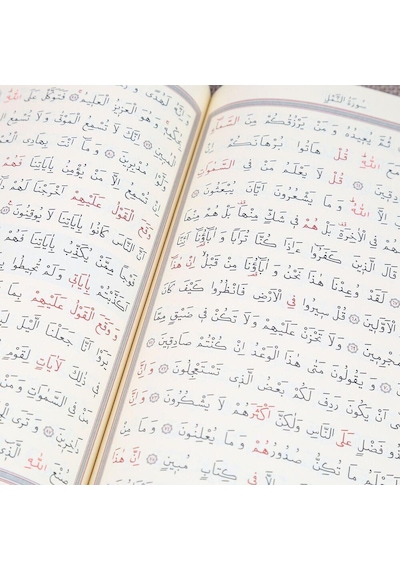 سُورَةُ النَّمْلِ
ثُمَّ يُعِيدُهُ وَمَنْ يَرْزُقُكُمْ مِنَ السَّمَاءِ
مَعَ اللّٰهِ قُلْ هَاتُوا بُرْهَانَكُمْ اِنْ
قُلْ لَا يَعْلَمُ مَنْ فِي السَّمٰوَاتِ
اِلَّا اللّٰهُ وَمَا يَشْعُرُونَ اَيَّانَ يُبْعَثُونَ
فِي الْاٰخِرَةِ بَلْ هُمْ فِي شَكٍّ مِنْهَا بَلْ هُمْ مِنْهَا
قَالَ الَّذِينَ كَفَرُوا ءَاِذَا كُنَّا تُرَابًا وَاٰبَاؤُنَا
لَقَدْ وُعِدْنَا هٰذَا نَحْنُ وَاٰبَاؤُنَا مِنْ قَبْلُ اِنْ هٰذَا
الْاَوَّلِينَ قُلْ سِيرُوا فِي الْاَرْضِ فَانْظُرُوا كَيْفَ كَانَ
وَلَا تَحْزَنْ عَلَيْهِمْ وَلَا تَكُنْ فِي ضَيْقٍ مِمَّا
وَيَقُولُونَ مَتٰى هٰذَا الْوَعْدُ اِنْ كُنْتُمْ صَادِقِينَ
اَنْ يَكُونَ رَدِفَ لَكُمْ بَعْضُ الَّذِي تَسْتَعْجِلُونَ وَاِنَّ
فَضْلٍ عَلَى النَّاسِ وَلٰكِنَّ اَكْثَرَهُمْ لَا يَشْكُرُونَ وَاِنَّ
مَا تُكِنُّ صُدُورُهُمْ وَمَا يُعْلِنُونَ وَمَا مِنْ
فِي كِتَابٍ مُبِينٍ اِنَّ هٰذَا
لَهُدًى وَ
وَهُوَ الْعَزِيزُ الْعَلِيمُ فَتَوَكَّلْ عَلَى اللّٰهِ
الْمُبِينِ اِنَّكَ لَا تُسْمِعُ الْمَوْتٰى وَلَا تُسْمِعُ
مُدْبِرِينَ وَمَا اَنْتَ بِهَادِي
تُسْمِعُ اِلَّا مَنْ يُؤْمِنُ بِاٰيَاتِنَا فَهُمْ
وَقَعَ الْقَوْلُ عَلَيْهِمْ اَخْرَجْنَا لَهُمْ
اَنَّ النَّاسَ كَانُوا بِاٰيَاتِنَا لَا يُوقِنُونَ
فَوْجًا مِمَّنْ يُكَذِّبُ بِاٰيَاتِنَا فَهُمْ
اَكَذَّبْتُمْ بِاٰيَاتِي وَلَمْ تُحِيطُوا
وَوَقَعَ الْقَوْلُ عَلَيْهِمْ بِمَا
يَرَوْا اَنَّا جَعَلْنَا الَّيْلَ
فِي ذٰلِكَ لَاٰيَاتٍ لِقَوْمٍ
مَنْ فِي السَّمٰوَاتِ وَمَنْ
دَاخِرِينَ وَتَرَى
صُنْعَ اللّٰهِ الَّذِي